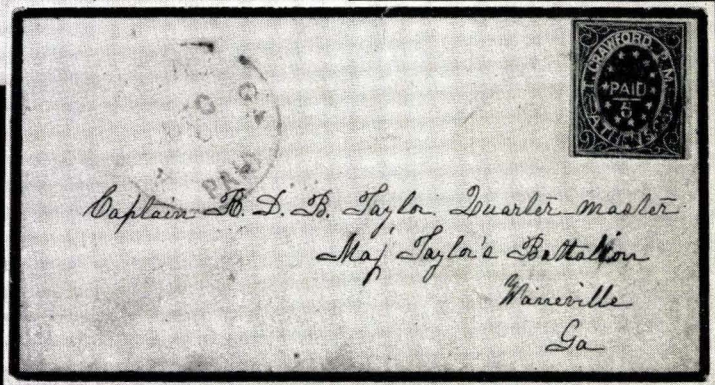 T. CRAWFORD. P.M.
PAID
5
ATHENS.GA
PAID
Captain R. D. B. Taylor Quarter master
Maj Taylor's Battalion
Ga